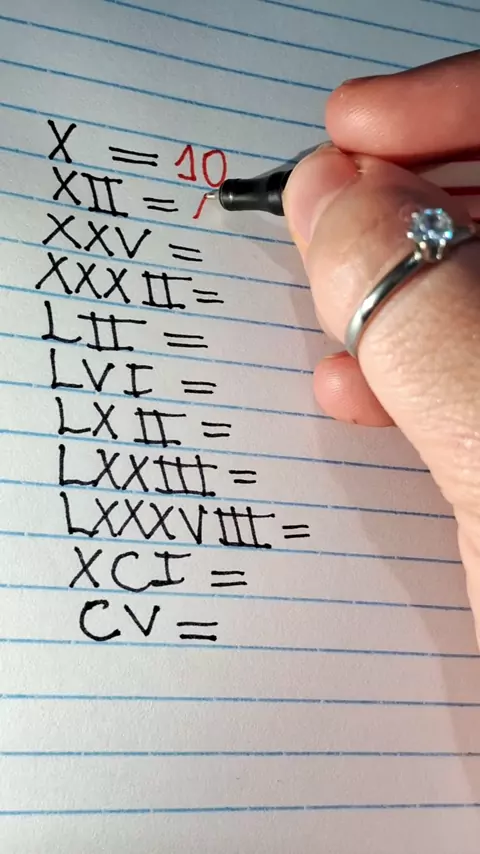 X = 10
XII =
XXV =
XXXII =
LII =
LVI =
LXII =
LXXIII =
LXXXVIII =
XCI =
CV =